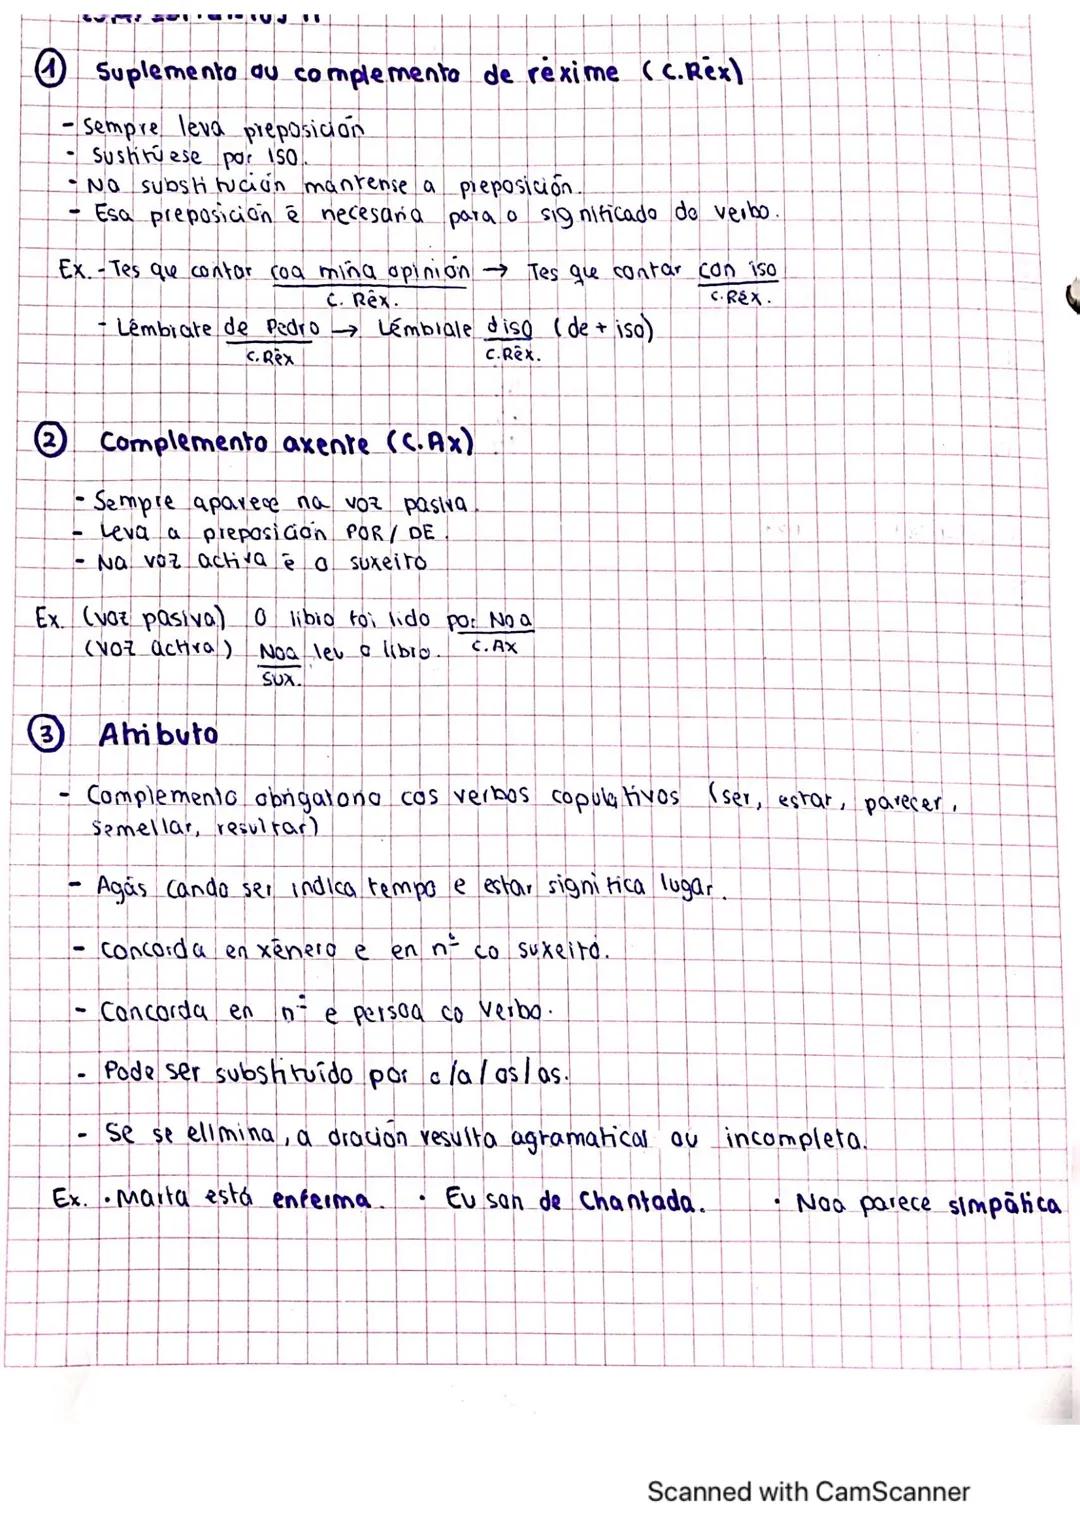 ① Suplemento ou complemento de réxime (C.Réx)
- Sempre leva preposición
- Sustitúese por ISO.
- Na substitución mantense a preposición.
- Esa preposición é necesaria para o significado do verbo.
Ex. - Tes que contar coa miña opinión → Tes que contar con iso
C. Réx. C.Réx.
- Lémbrate de Pedro → Lémbrate diso (de + iso)
C.Réx C.Réx.
② Complemento axente (C.Ax)
- Sempre aparece na voz pasiva.
- Leva a preposición POR / DE.
- Na voz activa é o suxeito
Ex. (voz pasiva) O libro foi lido por Noa
(voz activa) Noa leu o libro. C.Ax
SUX.
③ Atributo
- Complemento obrigatorio cos verbos copulativos (ser, estar, parecer,
semellar, resultar)
- Agás cando ser indica tempo e estar significa lugar.
- Concorda en xénero e en nº co suxeito.
- Concorda en nº e persoa co verbo.
- Pode ser substituído por o/a/os/as.
- Se se elimina, a oración resulta agramatical ou incompleta.
Ex. · Marta está enferma. · Eu son de Chantada. · Noa parece simpática
Scanned with CamScanner